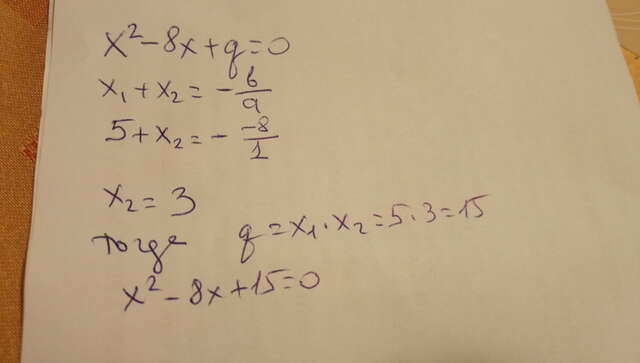 x² - 8x + q = 0
x₁ + x₂ = - b/a
5 + x₂ = - -8/1
x₂ = 3
тогда q = x₁ · x₂ = 5 · 3 = 15
x² - 8x + 15 = 0